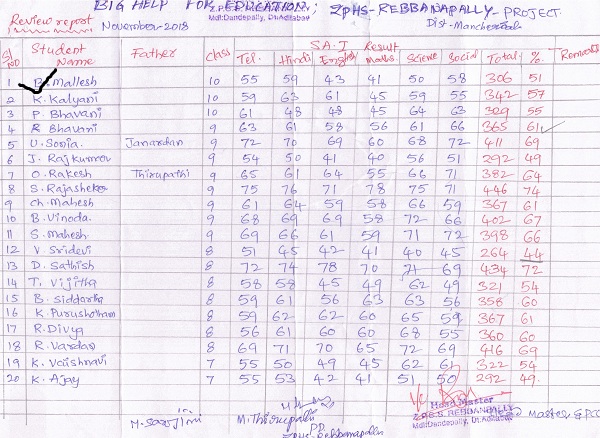 BIG HELP FOR EDUCATION; ZPHS-REBBANAPALLY-PROJECT
Review report November-2018 Mdl:Dandepally, Dt:Adilabad Dist-Mancherial
SA-I Result
Sl No Student Name Father Class Tel. Hindi English Maths Science Social Total % Remarks
1 B. Mallesh 10 55 59 43 41 50 58 306 51
2 K. Kalyani 10 59 63 61 45 59 55 342 57
3 P. Bhavani 10 61 48 48 45 64 63 329 55
4 R Bhavani 9 63 61 58 56 61 66 365 61
5 U. Sonia. Janardan 9 72 70 69 60 68 72 411 69
6 J. Rajkumar 9 54 50 41 40 56 51 292 49
7 O. Rakesh Thirupathi 9 65 61 64 55 66 71 382 64
8 S. Rajasheker 9 75 76 71 78 75 71 446 74
9 Ch. Mahesh 9 61 64 59 58 66 59 367 61
10 B. Vinoda. 9 68 69 69 58 72 66 402 67
11 S. Mahesh 9 69 66 61 59 71 72 398 66
12 V. Sridevi 8 51 45 42 41 40 45 264 44
13 D. Sathish 8 72 74 78 70 71 69 434 72
14 T. Vijitha 8 58 58 45 49 62 49 321 54
15 B. Siddartha 8 59 61 56 63 63 56 358 60
16 K. Purushotham 8 59 62 62 60 65 59 367 61
17 R. Divya 8 56 61 60 60 68 55 360 60
18 R. Vardan 8 69 71 70 65 72 69 416 69
19 K. Vaishnavi 7 55 50 49 45 62 61 322 54
20 K. Ajay 7 55 53 42 41 51 50 292 49.
M. Sarojini M. Thirupathi Head Master
Z.P.H.S. REBBANAPALLY Head Master & PCC
Mdl:Dandepally, Dt:Adilabad
ZPHS-Rebbanapalli